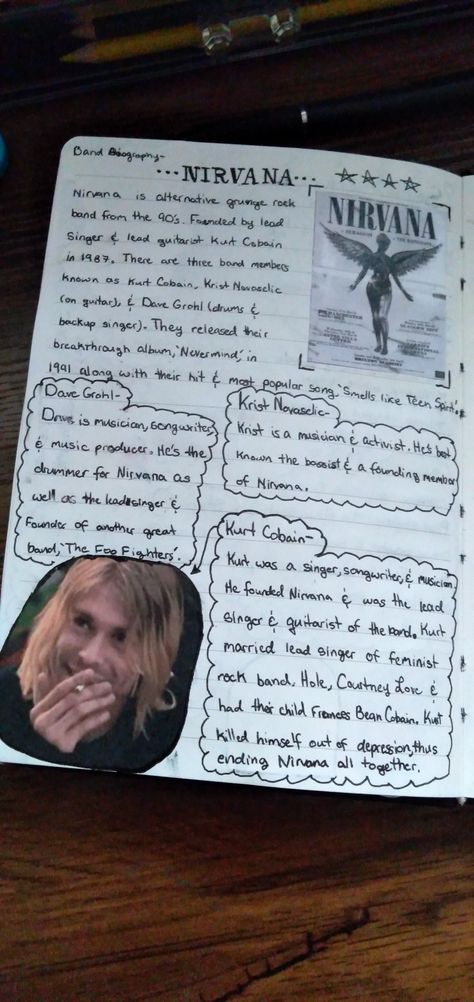 Band Biography-
...NIRVANA... ☆☆☆☆
Nirvana is alternative grunge rock
band from the 90's. Founded by lead
singer & lead guitarist Kurt Cobain
in 1987. There are three band members
known as Kurt Cobain, Krist Novoselic
(on guitar), & Dave Grohl (drums &
backup singer). They released their
breakthrough album, 'Nevermind', in
1991 along with their hit & most popular song 'Smells like Teen Spirit'.
NIRVANA
Dave Grohl-
Dave is musician, songwriter,
& music producer. He's the
drummer for Nirvana as
well as the lead singer &
Founder of another great
band, 'The Foo Fighters'.
Krist Novoselic-
Krist is a musician & activist. He's best
known the bassist & a founding member
of Nirvana.
Kurt Cobain-
Kurt was a singer, songwriter, & musician
He founded Nirvana & was the lead
singer & guitarist of the band. Kurt
married lead singer of feminist
rock band, Hole, Courtney Love &
had their child Frances Bean Cobain. Kurt
killed himself out of depression, thus
ending Nirvana all together.